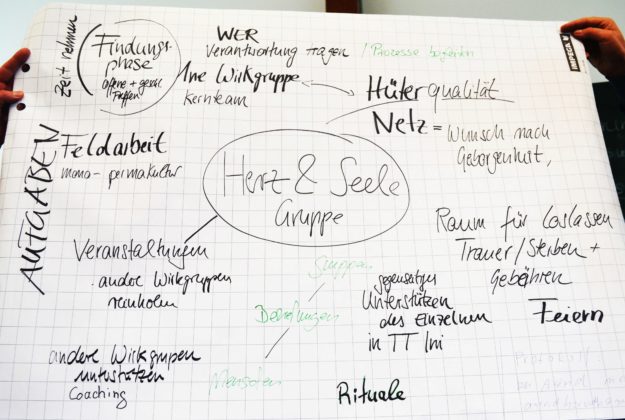 Zeit nehmen
Findungs-
phase
offene + geschl.
Treffen
WER
Verantwortung tragen / Prozesse begleiten
1ne Wirkgruppe
Kernteam
Hüterqualität
Netz = Wunsch nach
Geborgenheit,
AUFGABEN
Feldarbeit
mono - permakultur
Herz & Seele
Gruppe
Veranstaltungen
andere Wirkgruppen
reinholen
Raum für Loslassen
Trauer/Sterben +
Gebähren
Feiern
Gruppen
Beziehungen
Menschen
gegenseitiges
Unterstützen
des Einzelnen
in TT Ini
andere Wirkgruppen
unterstützen
Coaching
Rituale